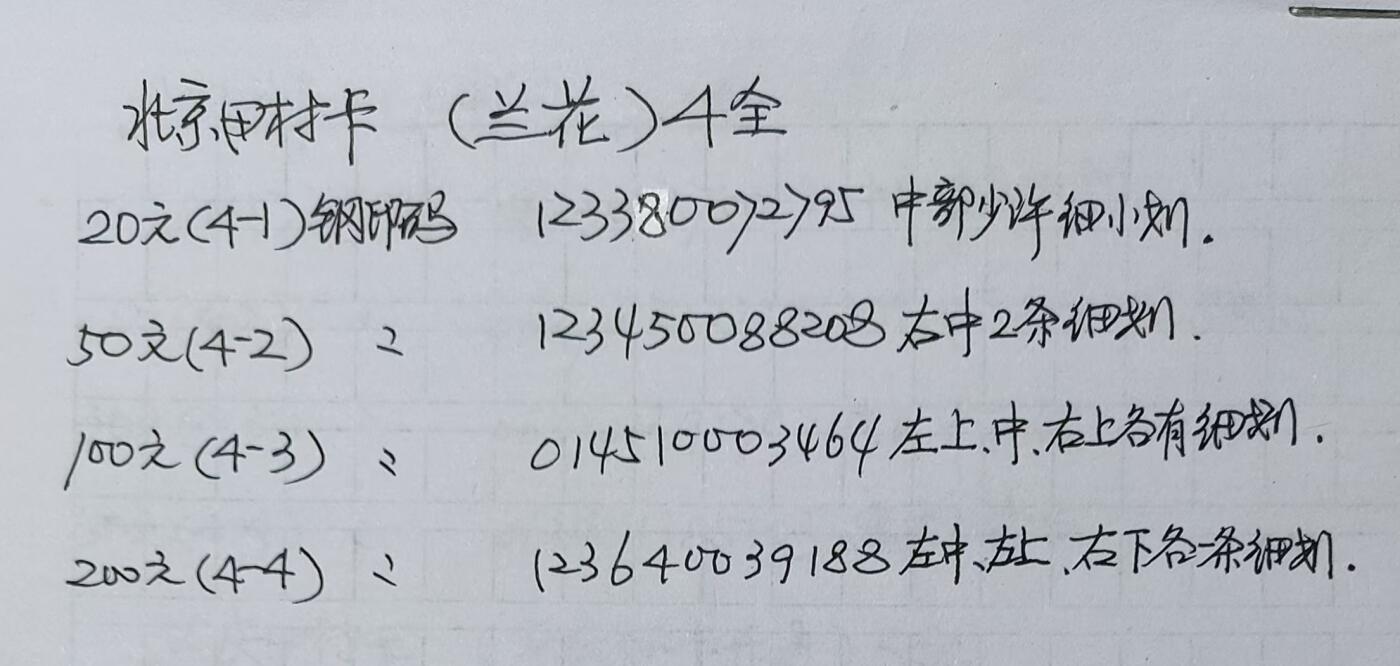 北京田村卡 (兰花)4全
20元(4-1)钢印码 123380072795 中部少许细小划.
50元(4-2) 〃 123450088208 右中2条细划.
100元(4-3) 〃 014510003464 左上、中、右上各有细划.
200元(4-4) 〃 123640039188 左中、左上、右下各一条细划.